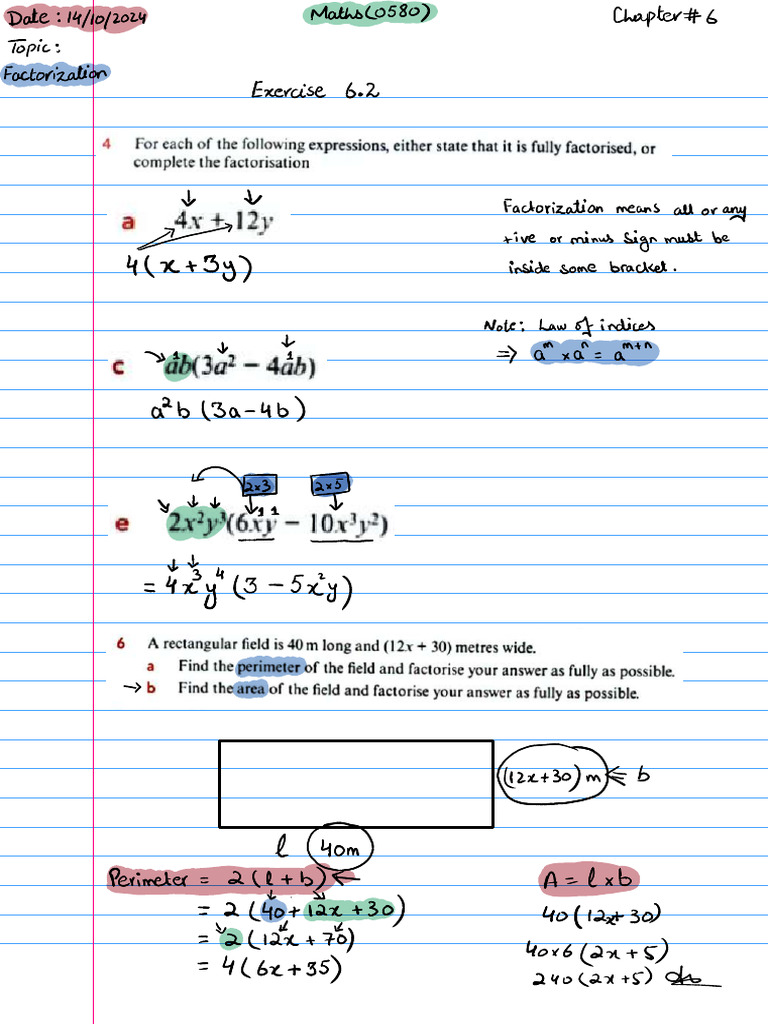 Date: 14/10/2024 Maths(0580) Chapter# 6
Topic:
Factorization
Exercise 6.2
4 For each of the following expressions, either state that it is fully factorised, or
complete the factorisation
a 4x + 12y
4(x+3y)
Factorization means all or any
+ive or minus sign must be
inside some bracket.
Note: Law of indices
⇒ aᵐ × aⁿ = aᵐ⁺ⁿ
1 1
c ab(3a² − 4ab)
a²b (3a-4b)
2×3 2×5
1 1
e 2x²y³(6xy − 10x³y²)
= 4x³y⁴(3 − 5x²y)
6 A rectangular field is 40 m long and (12x + 30) metres wide.
a Find the perimeter of the field and factorise your answer as fully as possible.
→ b Find the area of the field and factorise your answer as fully as possible.
(12x+30)m ← b
l 40m
Perimeter = 2(l+b) ←
= 2(40+12x+30)
= 2(12x+70)
= 4(6x+35)
A = l×b
40(12x+30)
40×6(2x+5)
240(2x+5)